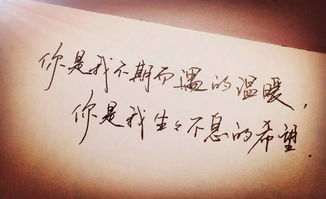 你是我不期而遇的温暖,
你是我生々不息的希望.